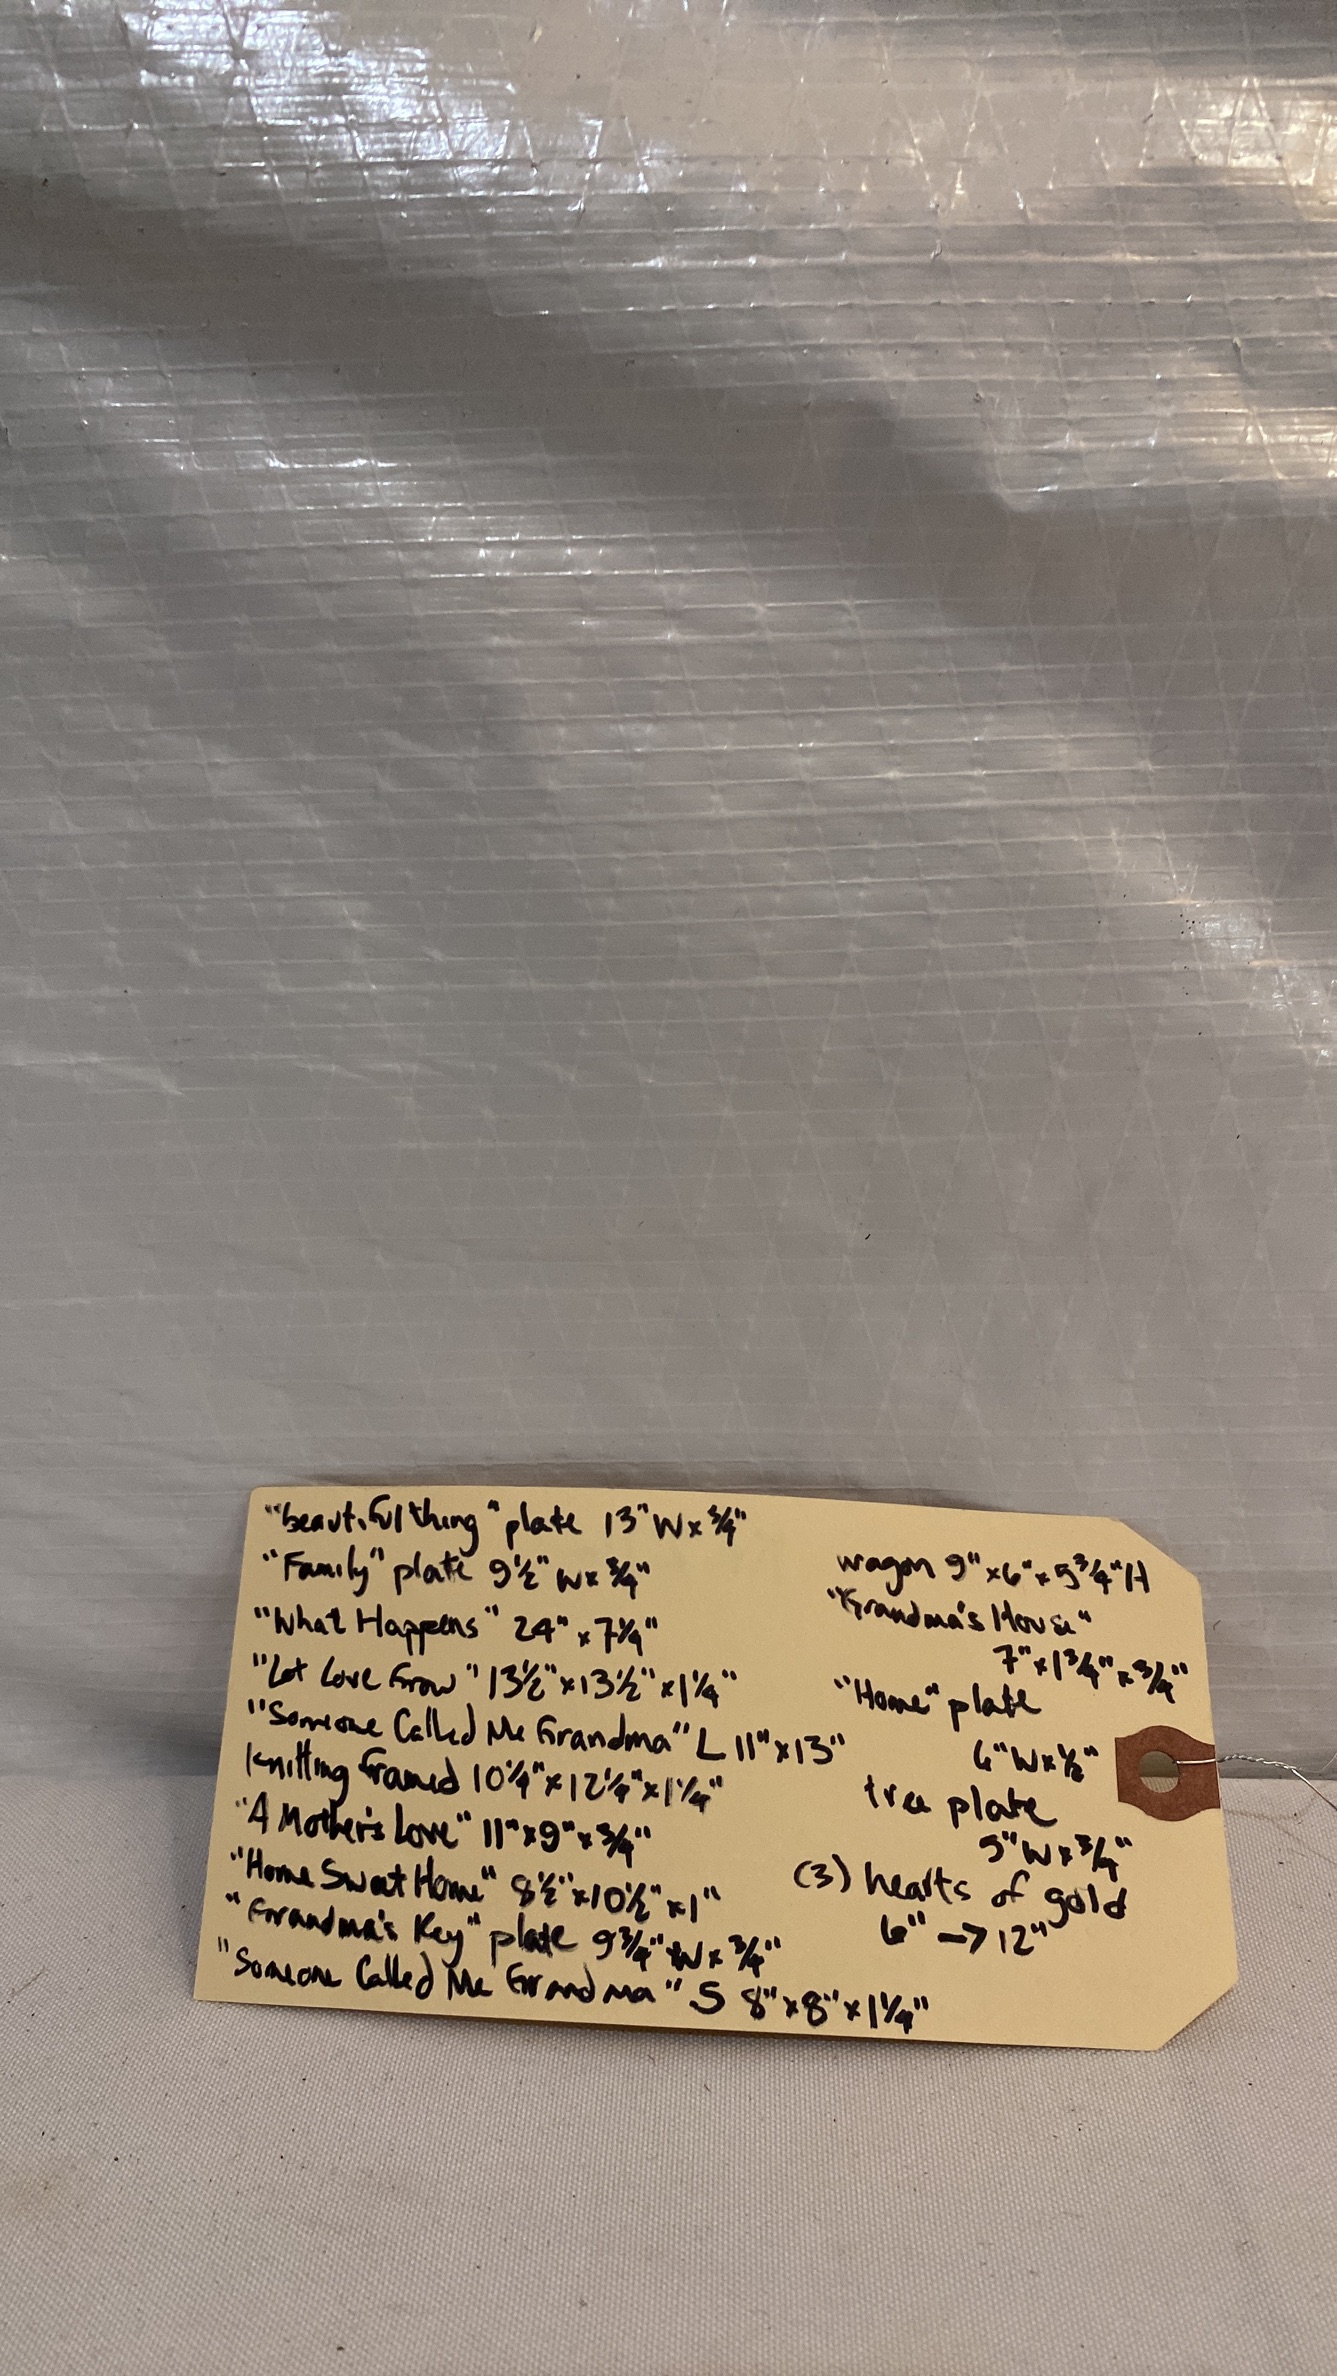 "beautiful thing" plate 13" W x 3/4"
"Family" plate 9 1/2" W x 3/4"
"What Happens" 24" x 7 1/4"
"Let Love Grow" 13 1/2" x 13 1/2" x 1 1/4"
"Someone Called Me Grandma" L 11" x 13"
Knitting framed 10 1/4" x 12 1/4" x 1 1/4"
"A Mother's Love" 11" x 9" x 3/4"
"Home Sweet Home" 8 1/2" x 10 1/2" x 1"
"Grandma's Key" plate 9 3/4" W x 3/4"
"Someone Called Me Grandma" S 8" x 8" x 1 1/4"
wagon 9" x 6" x 5 3/4" H
"Grandma's House"
7" x 1 3/4" x 3/4"
"Home" plate
6" W x 1/2"
tree plate
5" W x 3/4"
(3) hearts of gold
6" → 12"